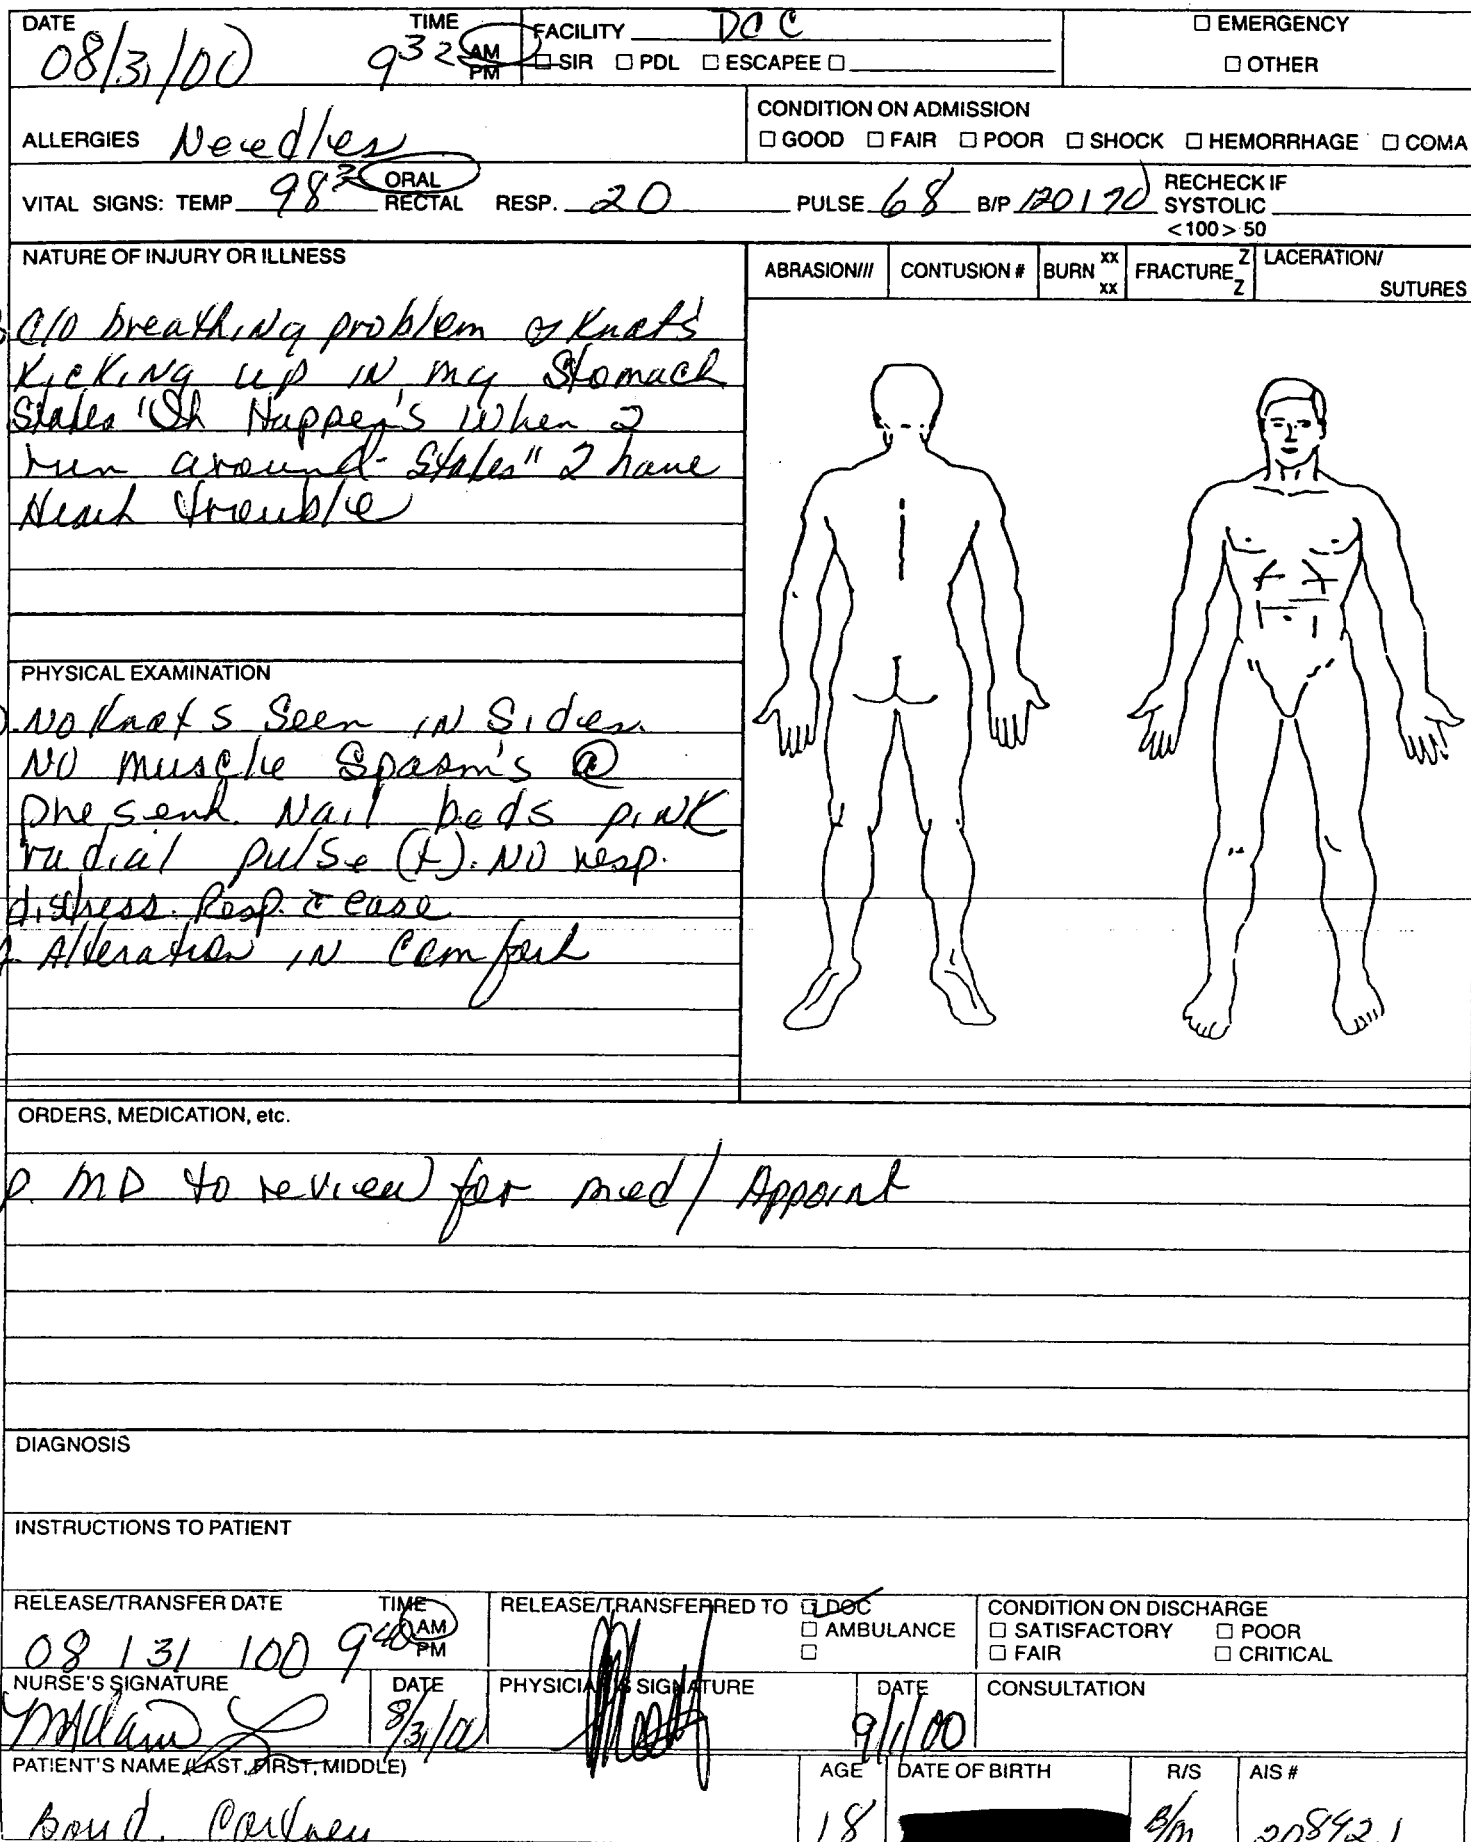 DATE TIME FACILITY DOC ☐ EMERGENCY
08/31/00 9 32 AM ☐ SIR ☐ PDL ☐ ESCAPEE ☐ ☐ OTHER
PM
CONDITION ON ADMISSION
ALLERGIES Needles ☐ GOOD ☐ FAIR ☐ POOR ☐ SHOCK ☐ HEMORRHAGE ☐ COMA
VITAL SIGNS: TEMP 98 3 ORAL RECTAL RESP. 20 PULSE 68 B/P 120170 RECHECK IF SYSTOLIC
<100> 50
NATURE OF INJURY OR ILLNESS ABRASION/// CONTUSION # BURN xx xx FRACTURE Z Z LACERATION/ SUTURES
C/O breathing problem & Knats
Kicking up in my Stomach
States "It Happen's When I
run around- States" I have
Heart trouble
PHYSICAL EXAMINATION
No Knats Seen in Sides.
NO muscle Spasm's @
present. Nail beds pink
radial pulse (+). NO resp.
distress. Resp. c̄ ease
Alteration in Comfort
ORDERS, MEDICATION, etc.
P. MD to review for med/ Appoint
DIAGNOSIS
INSTRUCTIONS TO PATIENT
RELEASE/TRANSFER DATE TIME RELEASE/TRANSFERRED TO ☐ DOC CONDITION ON DISCHARGE
08 131 100 9 40 AM PM ☐ AMBULANCE ☐ SATISFACTORY ☐ POOR
☐ ☐ FAIR ☐ CRITICAL
NURSE'S SIGNATURE DATE PHYSICIAN'S SIGNATURE DATE CONSULTATION
8/31/00 9/1/00
PATIENT'S NAME (LAST, FIRST, MIDDLE) AGE DATE OF BIRTH R/S AIS #
18 B/m 208921